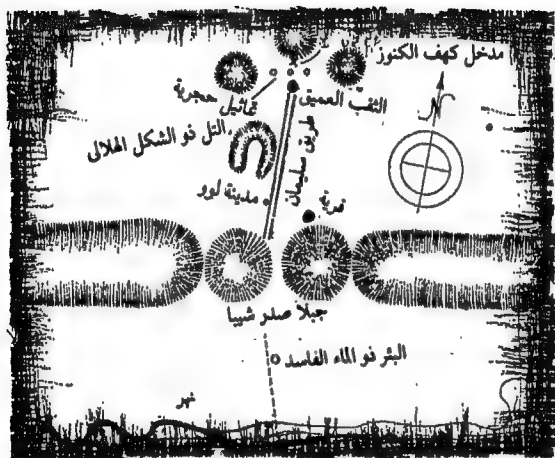 مدخل كهف الكنوز
تماثيل حجرية
الثقب العميق
التل ذو الشكل الهلالى
طريق سليمان
مدينة لوو
قرية
جبلا صدر شيبا
البئر ذو الماء الفاسد
نهر